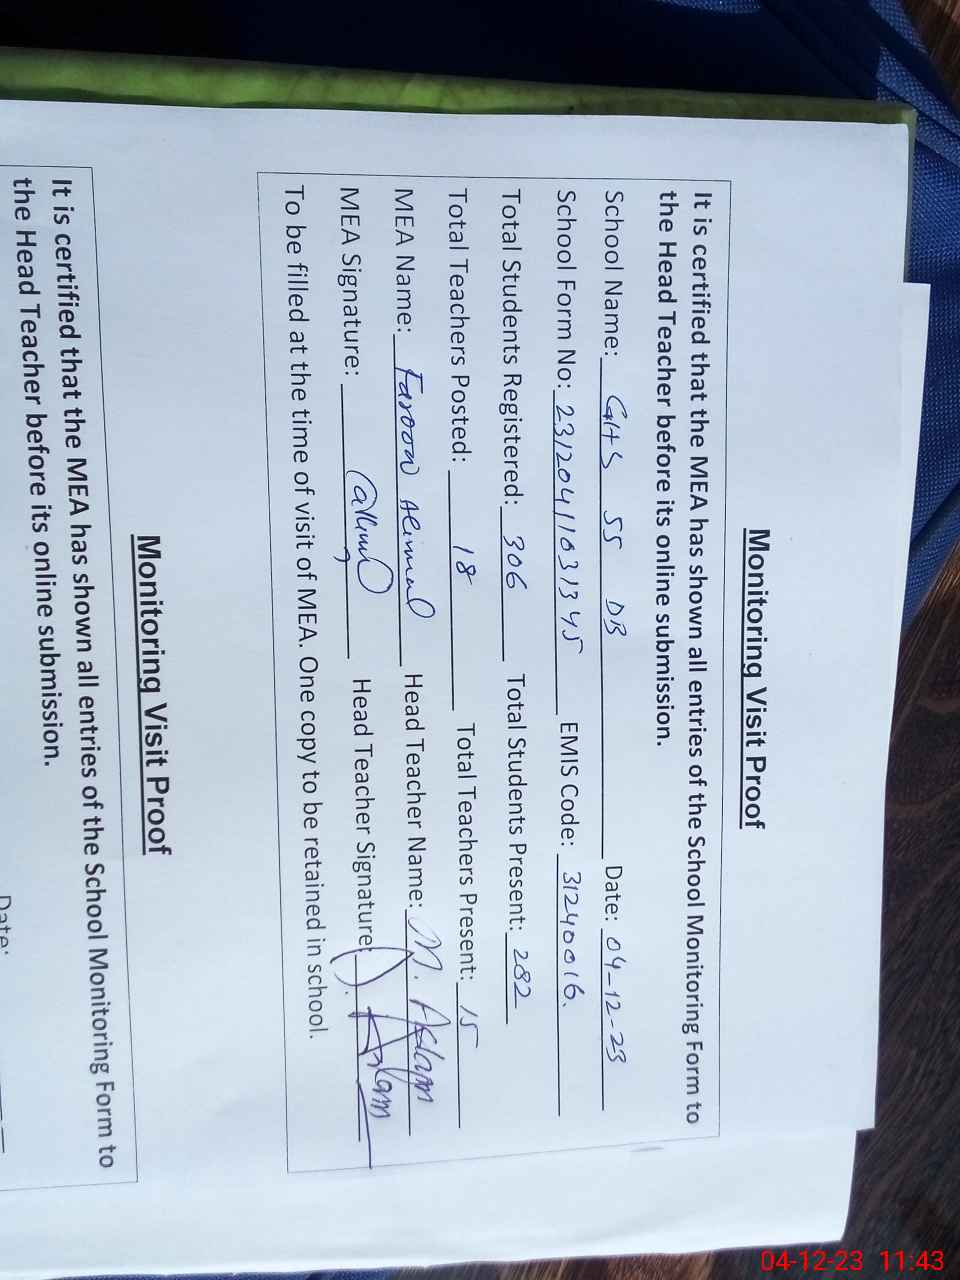 Monitoring Visit Proof
It is certified that the MEA has shown all entries of the School Monitoring Form to
the Head Teacher before its online submission.
School Name: GHS 55 DB Date: 04-12-23
School Form No: 23120411031345 EMIS Code: 31240016.
Total Students Registered: 306 Total Students Present: 282
Total Teachers Posted: 18 Total Teachers Present: 15
MEA Name: Farooq Ahmad Head Teacher Name: M. Aslam
MEA Signature: Head Teacher Signature: Aslam
To be filled at the time of visit of MEA. One copy to be retained in school.
Monitoring Visit Proof
It is certified that the MEA has shown all entries of the School Monitoring Form to
the Head Teacher before its online submission.
Date:
04-12-23 11:43